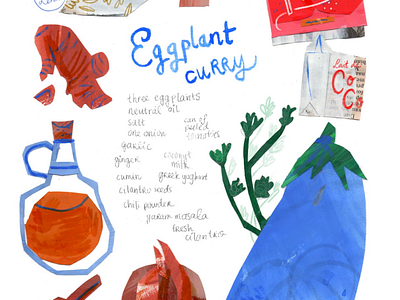 Eggplant
CURRY
three eggplants
neutral oil
salt
can of
peeled
tomatoes
one onion
garlic
ginger
coconut
milk
cumin
greek yoghurt
cilantro seeds
chili powder
garam masala
fresh
cilantro
Co
Co